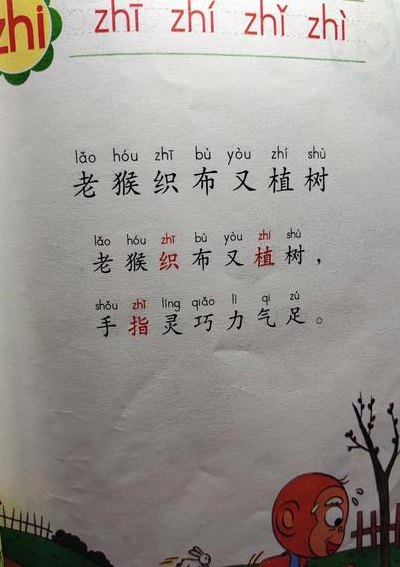 zhi zhī zhí zhǐ zhì
lǎo hóu zhī bù yòu zhí shù
老猴织布又植树
lǎo hóu zhī bù yòu zhí shù
老猴织布又植树，
shǒu zhǐ líng qiǎo lì qì zú
手指灵巧力气足。